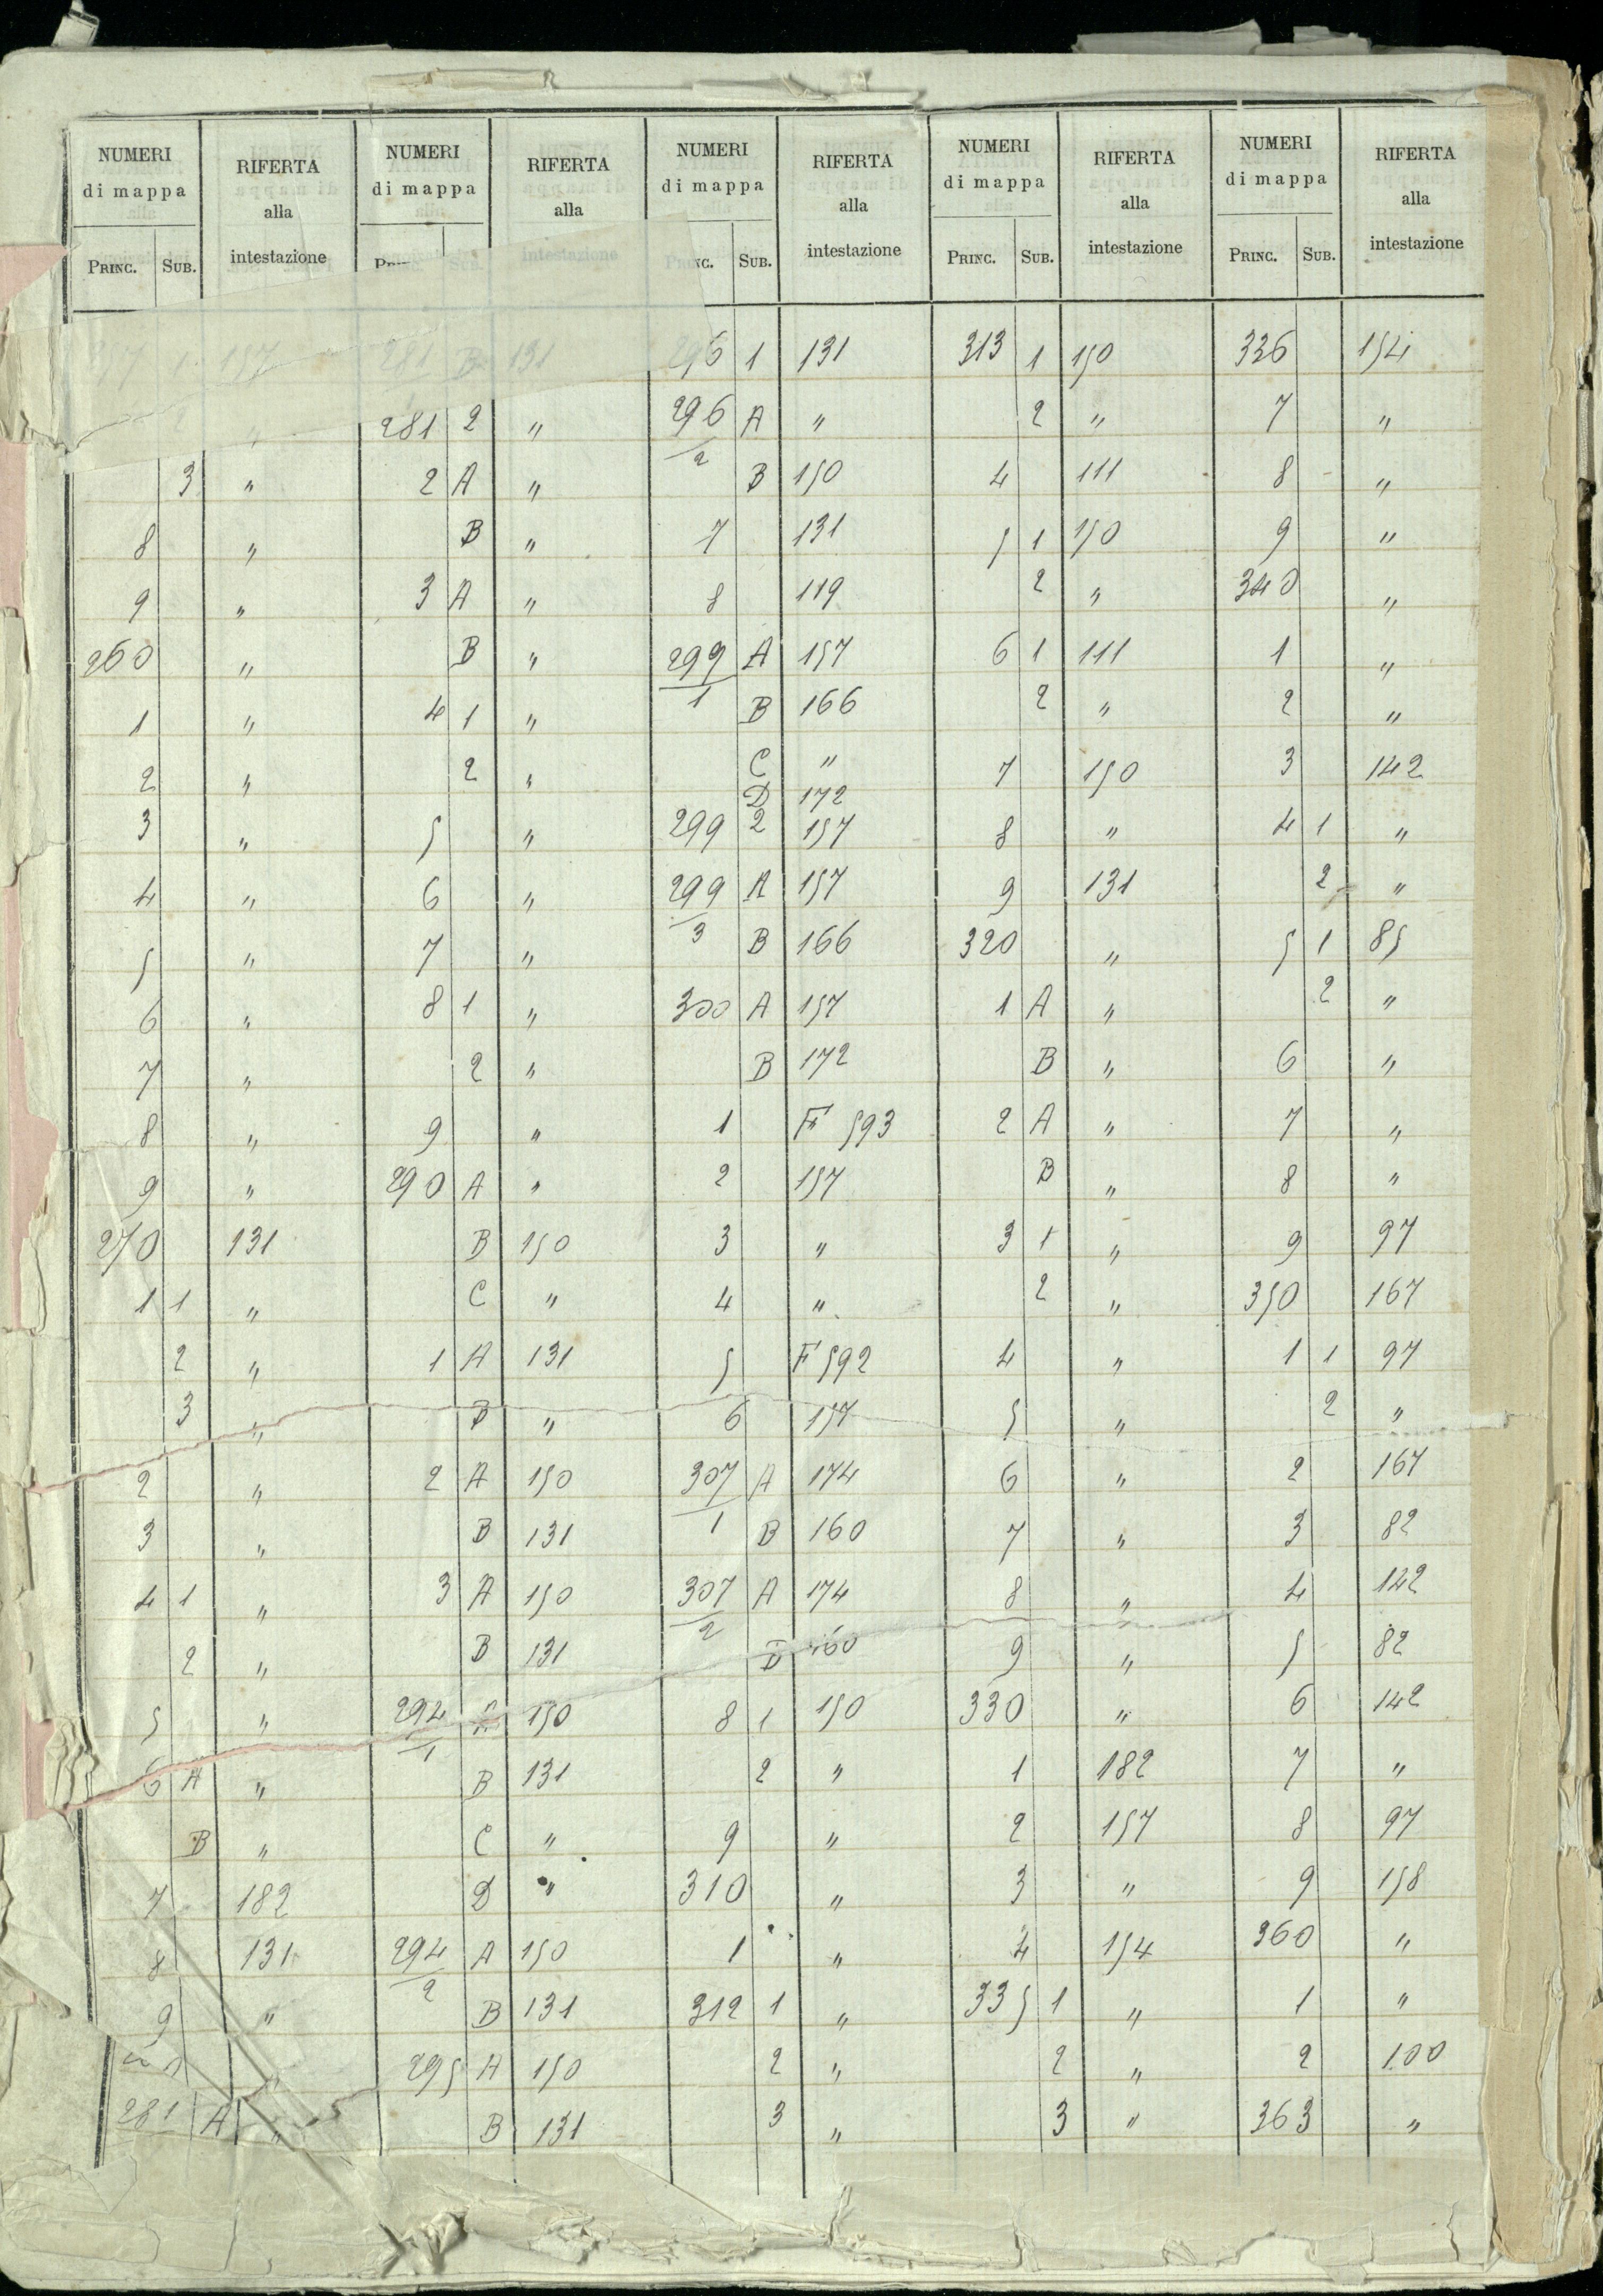 NUMERI di mappa
PRINC. SUB.
RIFERTA alla intestazione
1 157
2 "
3 "
8 "
9 "
260 "
1 "
2 "
3 "
4 "
5 "
6 "
7 "
8 "
9 "
270 131
1 1 "
2 "
3 "
2 "
3 "
4 1 "
2 "
5 "
6 A "
B "
7 182
8 131
9 "
281 A "
NUMERI di mappa
SUB.
RIFERTA alla intestazione
281 B 131
281 2 "
2 A "
B "
3 A "
B "
4 1 "
2 "
5 "
6 "
7 "
8 1 "
2 "
9 "
290 A "
B 150
C "
1 A 131
B "
2 A 150
B 131
3 A 150
B 131
294/1 A 150
B 131
C "
D "
294/2 A 150
B 131
295 A 150
B 131
NUMERI di mappa
PRINC. SUB.
RIFERTA alla intestazione
296 1 131
296/2 A "
B 150
7 131
8 119
299/1 A 157
B 166
C "
D 172
299 2 157
299/3 A 157
B 166
300 A 157
B 172
1 F 593
2 157
3 "
4 "
5 F 592
6 157
307/1 A 174
B 160
307/2 A 174
B 160
8 1 150
2 "
9 "
310 "
1 "
312 1 "
2 "
3 "
NUMERI di mappa
PRINC. SUB.
RIFERTA alla intestazione
313 1 150
2 "
4 111
5 1 150
2 "
6 1 111
2 "
7 150
8 "
9 131
320 "
1 A "
B "
2 A "
B "
3 1 "
2 "
4 "
5 "
6 "
7 "
8 "
9 "
330 "
1 182
2 157
3 "
4 154
335 1 "
2 "
3 "
NUMERI di mappa
PRINC. SUB.
RIFERTA alla intestazione
336 154
7 "
8 "
9 "
340 "
1 "
2 "
3 142
4 1 "
2 "
5 1 85
2 "
6 "
7 "
8 "
9 97
350 167
1 1 97
2 "
2 167
3 82
4 142
5 82
6 142
7 "
8 97
9 158
360 "
1 "
2 100
363 "